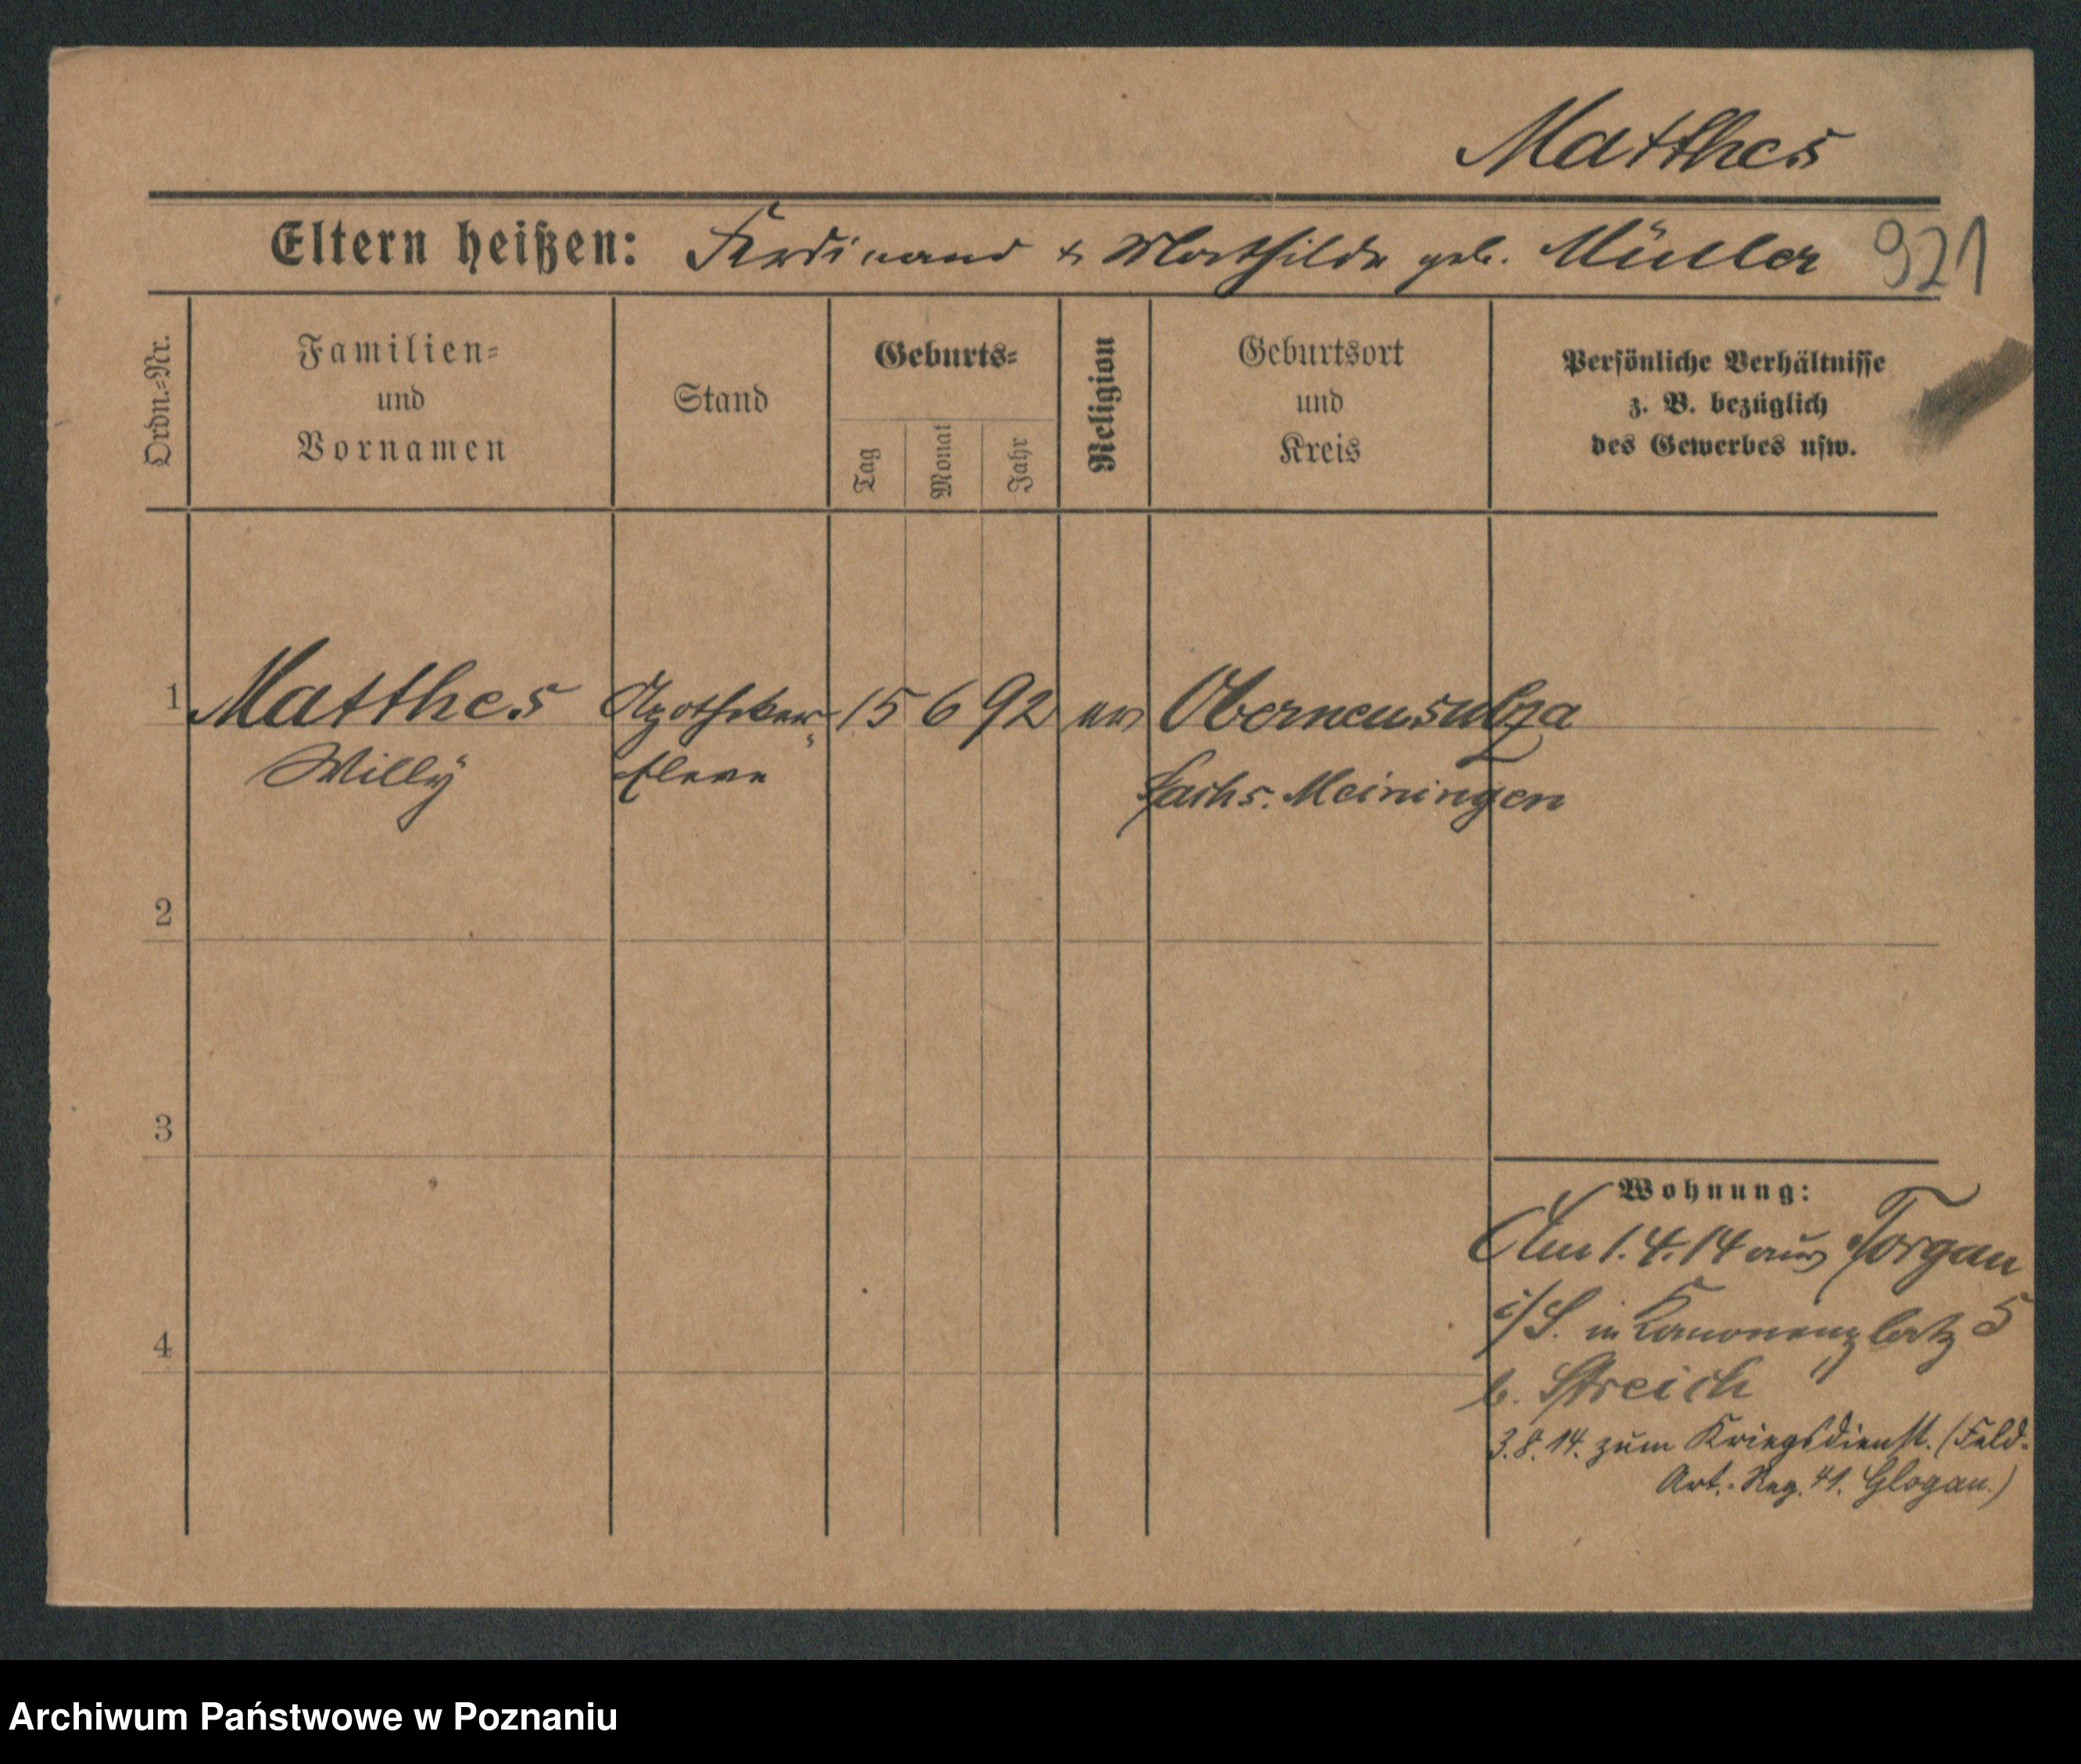 Matthes
Eltern heißen: Ferdinand & Mathilde geb. Müller 921
Ordn.=Nr.
Familien=
und
Vornamen
Stand
Geburts=
Tag
Monat
Jahr
Religion
Geburtsort
und
Kreis
Persönliche Verhältnisse
z. B. bezüglich
des Gewerbes usw.
1 Matthes Apotheker= 15 6 92 ev Oberneusulza
Willÿ Eleve Sachs. Meiningen
2
3
4
Wohnung:
Am 1.4.14 aus Torgau
i/S. in Kanonenplatz 5
b. Streich
3.8.14. zum Kriegsdienst. (Feld-
Art.-Reg. 41. Glogau.)
Archiwum Państwowe w Poznaniu